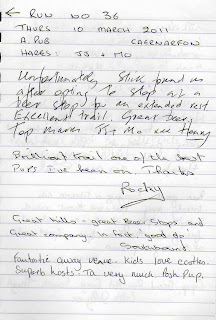 ← RUN NO 36
THURS 10 MARCH 2011
A. PUB CAERNARFON
HARES: JJ + MO
Unfortunately Slick found us
after opting to stop at a
beer stop for an extended rest
Excellent trail. Great beer
Top marks JJ Mo
Brilliant Trail one of the best
Pub's I've been on. Thanks
Rocky
Great hills - great Beer Stops and
Great company in fact good do
Fantastic away venue. Kids love
Superb hosts. Ta very much Posh Pup.